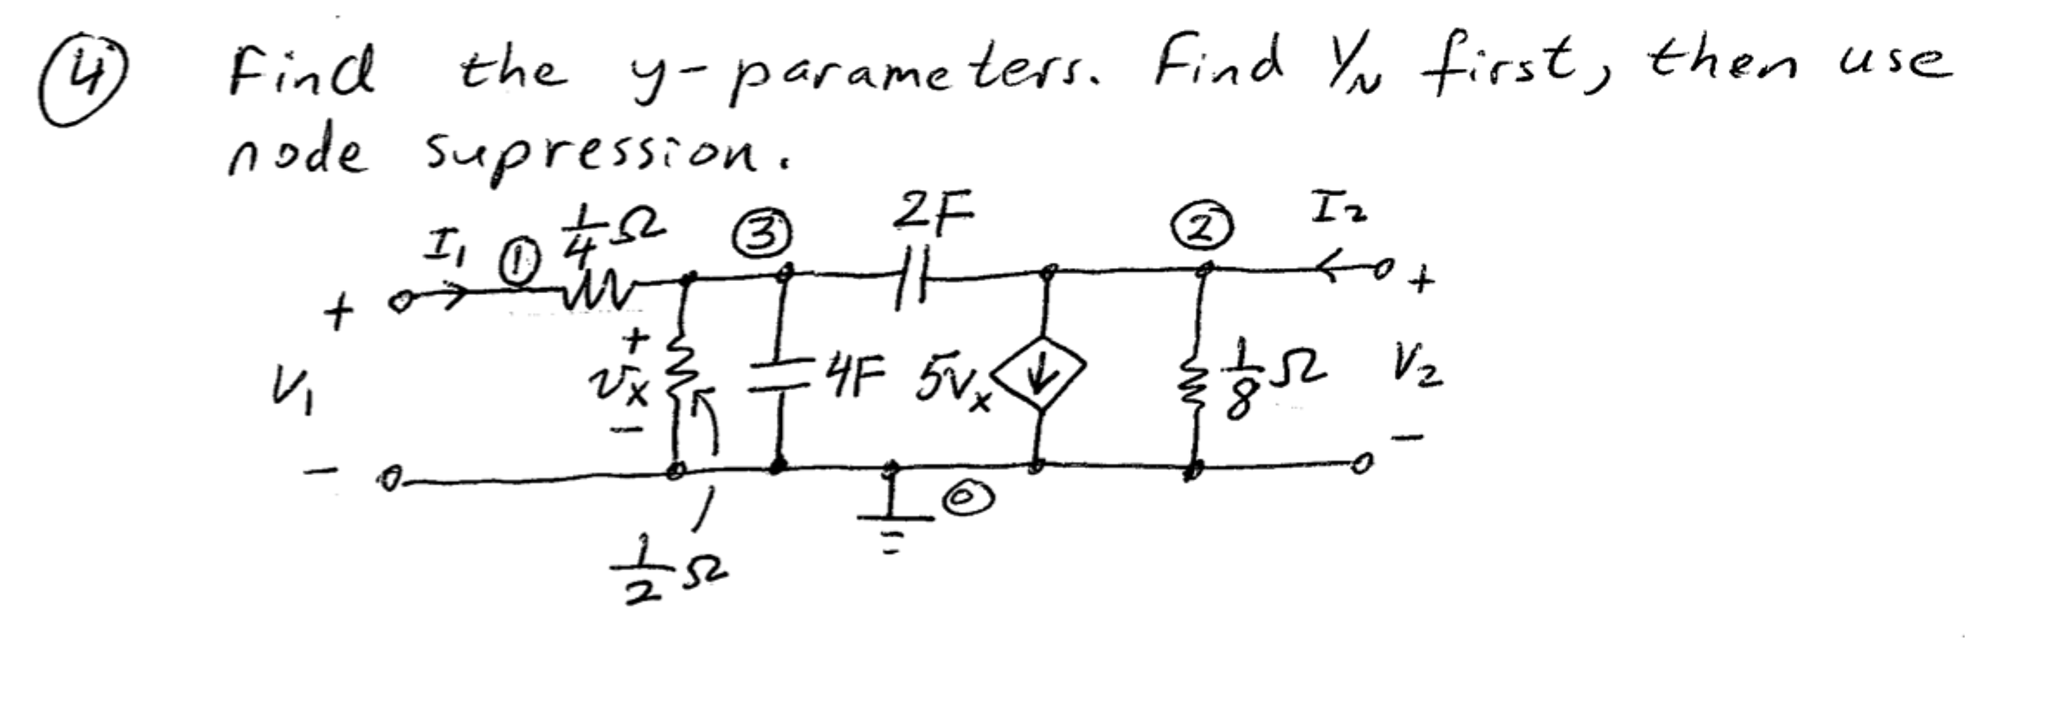 ④ Find the y-parameters. Find Y_N first, then use
node supression.
I₁ ① 1/4 Ω ③ 2F ② I₂
+ +
V₁ + v_x - 4F 5v_x 1/8 Ω V₂
- -
⓪
1/2 Ω